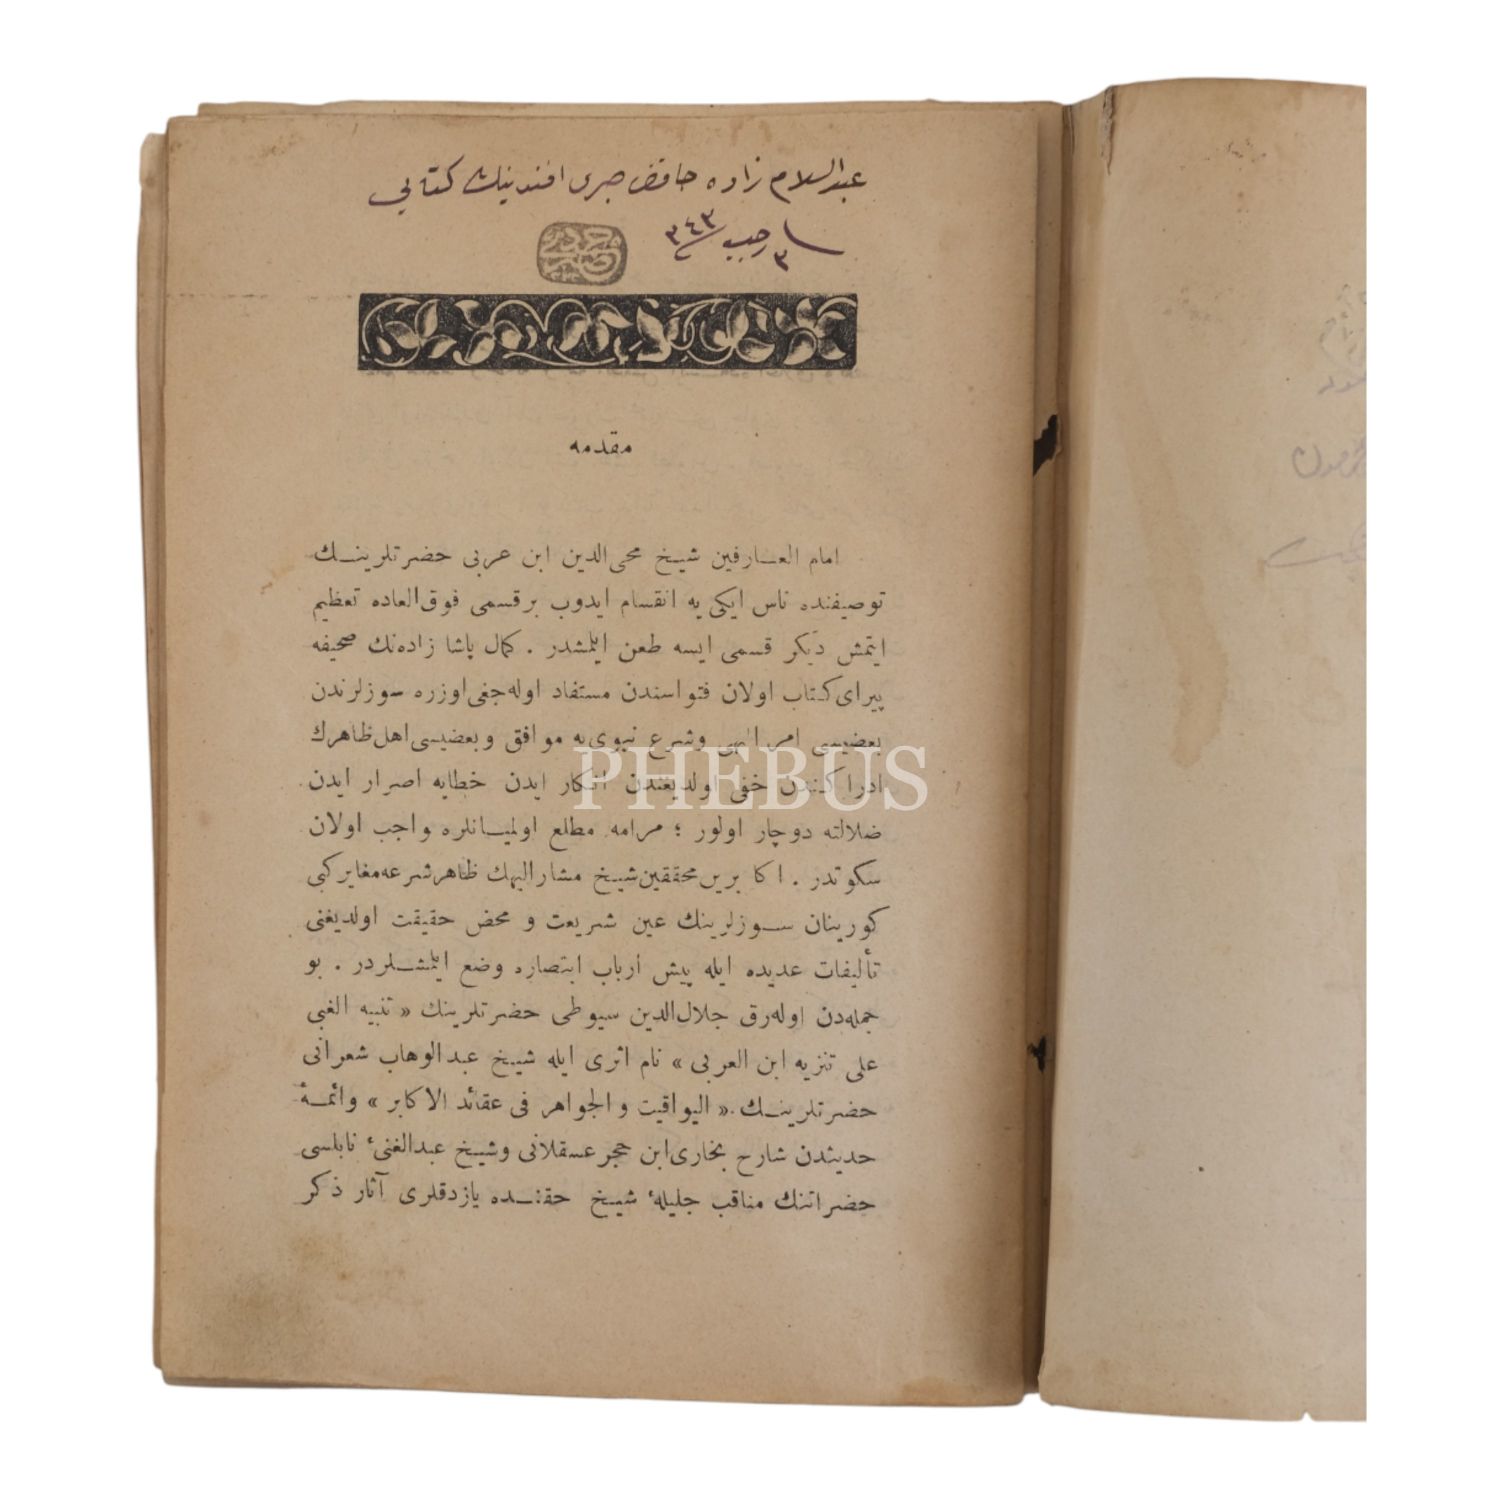 عبد السلام زاده حافظ صبری افندینك كتابی
٣ رجب ٣٤٣
مقدمه
امام العــارفین شیــخ محی‌الدین ابن عربی حضرتلرینــك
توصیفنده ناس ایكی یه انقسام ایدوب برقسمی فوق‌العاده تعظیم
ایتمش دیكر قسمی ایسه طعن ایلمشدر . كمال پاشا زاده‌نك صحیفه
پیرای كتاب اولان فتواسندن مستفاد اوله‌جغی اوزره سوزلرندن
بعضیسی امر الهی وشرع نبوی‌یه موافق وبعضیسی اهل ظاهرك
ادراكندن خفی اولدیغندن انكار ایدن خطایه اصرار ایدن
ضلالته دوچار اولور ؛ مرامه مطلع اولمیــانلره واجب اولان
سكوتدر . اكابرین محققین شیــخ مشارالیهك ظاهر شرعه مغایر كبی
كورینان ســوزلرینك عین شریعت و محض حقیقت اولدیغنی
تألیفات عدیده ایله پیش ارباب ابتصاره وضع ایلمشــلردر . بو
جمله‌دن اوله‌رق جلال‌الدین سیوطی حضرتلرینك « تنبیه الغبی
علی تنزیه ابن العربی » نام اثری ایله شیــخ عبدالوهاب شعرانی
حضرتلرینــك « الیواقیت والجواهر فی عقائد الاكابر » وائمــهٔ
حدیثدن شارح بخاری ابن حجر عسقلانی وشیــخ عبدالغنیٔ نابلسی
حضراتنك مناقب جلیلهٔ شیــخ حقنــده یازدقلری آثار ذكر
PHEBUS